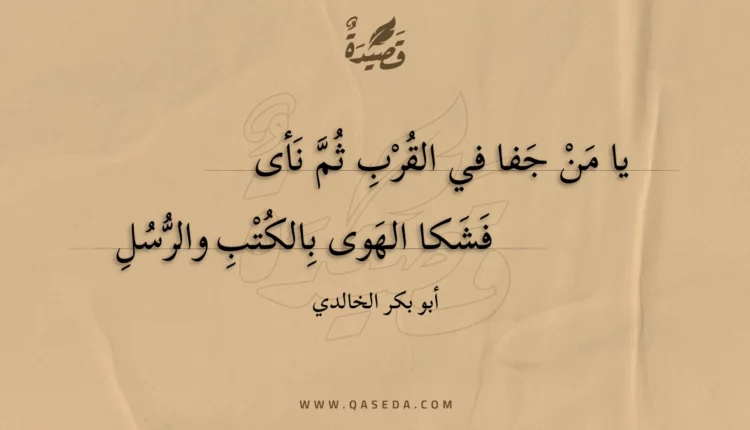 قَصِيْدَةٌ
يا مَنْ جَفا في القُرْبِ ثُمَّ نَأى
فَشَكا الهَوى بِالكُتْبِ والرُّسُلِ
أبو بكر الخالدي
WWW.QASEDA.COM